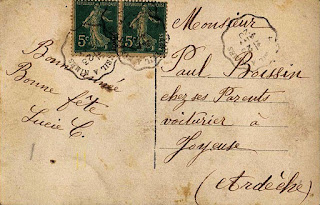 Bonne année
Bonne fête
Lucie C.
5c
5c
Monsieur
Paul Boissin
chez ses Parents
voiturier à
Joyeuse
(Ardèche)